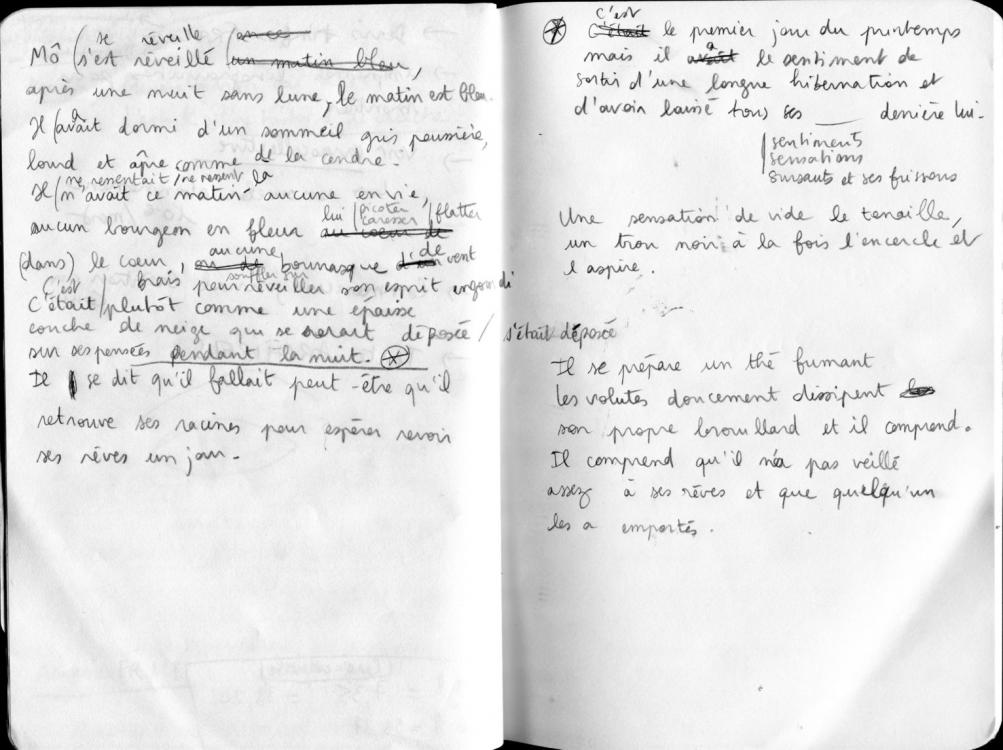 se réveille
Mô / s'est réveillé / un matin bleu,
après une nuit sans lune, le matin est bleu.
Il / avait dormi d'un sommeil gris, poussière,
a
lourd et âpre comme de la cendre.
ne ressentait / ne ressent la
Il / n'avait ce matin aucune envie,
lui / picoter / flatter
caresser
aucun bourgeon en fleur au coeur de
aucune de
(dans) le coeur, bourrasque vent
souffler sur
C'est / frais pour réveiller son esprit engourdi
C'était / plutôt comme une épaisse
couche de neige qui se serait déposée / s'était déposée
sur ses pensées pendant la nuit. *
Il se dit qu'il fallait peut-être qu'il
retrouve ses racines pour espérer revoir
ses rêves un jour.
C'est
* C'était le premier jour du printemps
a
mais il avait le sentiment de
sortir d'une longue hibernation et
d'avoir laissé tous ses ___ derrière lui.
sentiments
sensations
sursauts et ses frissons
Une sensation de vide le tenaille,
un trou noir à la fois l'encercle et
l'aspire.
Il se prépare un thé fumant
les volutes doucement dissipent
son propre brouillard et il comprend.
Il comprend qu'il n'a pas veillé
assez à ses rêves et que quelqu'un
les a emportés.